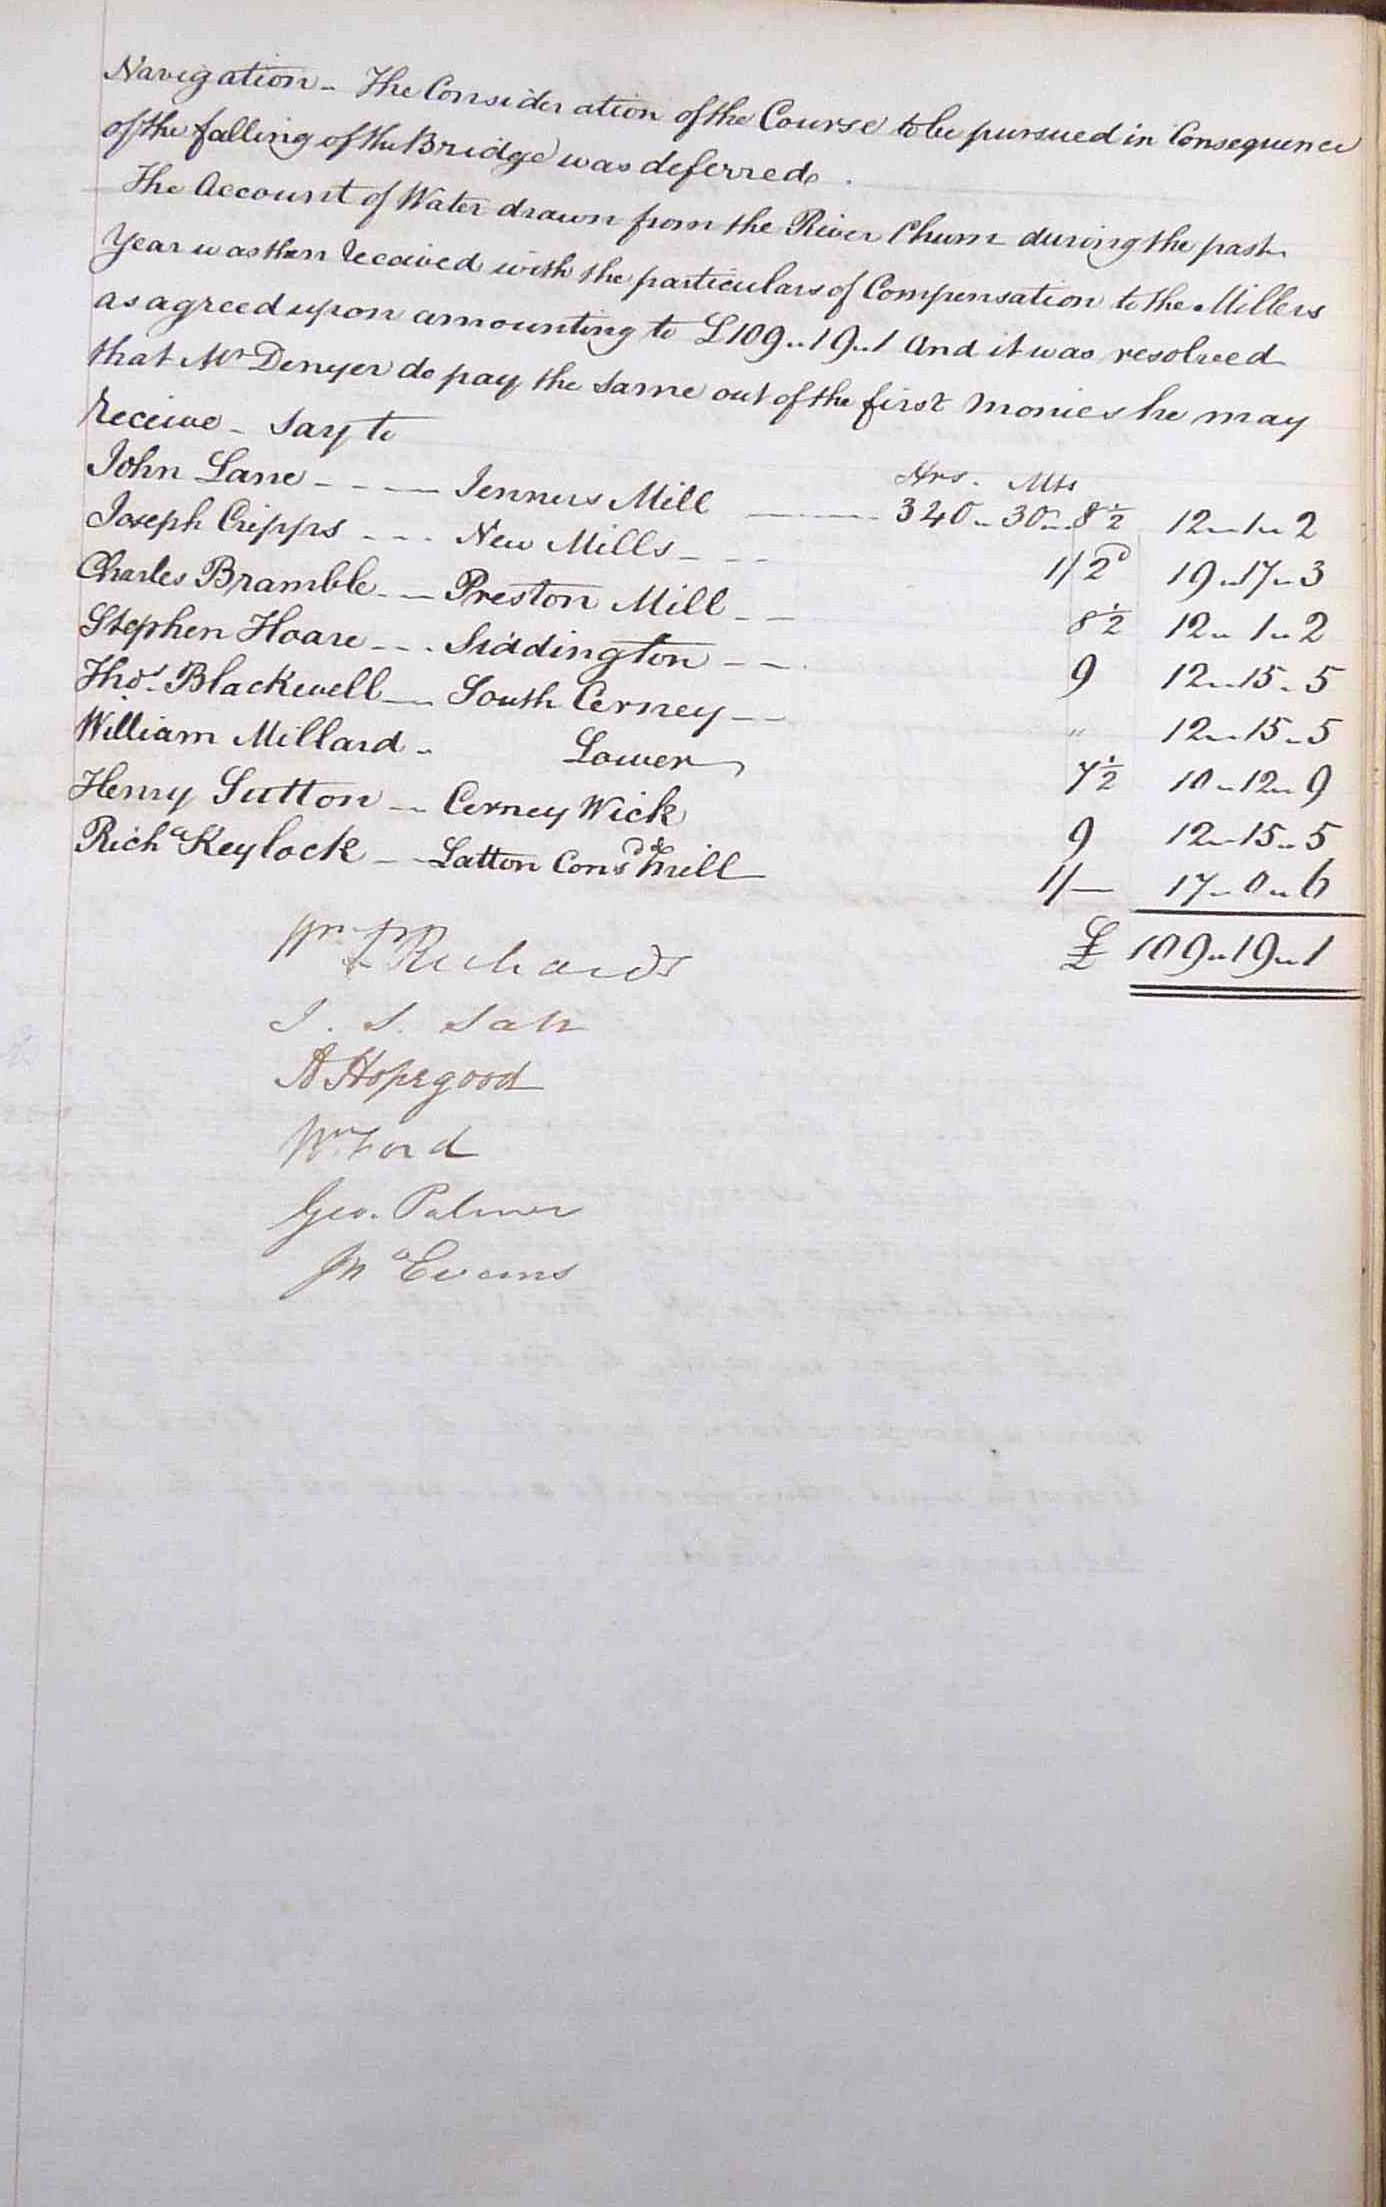 Navigation - The Consideration of the Course to be pursued in Consequence
of the falling of the Bridge was deferred.
The Account of Water drawn from the River Churn during the past
Year was then received with the particulars of Compensation to the Millers
as agreed upon amounting to £109..19..1 And it was resolved
that Mr Denyer do pay the same out of the first Monies he may
receive - Say to
Hrs. Mts
John Lane - - - - Jenners Mill - 340 - 30 - 8½ 12 - 1 - 2
Joseph Cripps - - - New Mills - - 1/2d 19 - 17 - 3
Charles Bramble - - Preston Mill - - 8½ 12 - 1 - 2
Stephen Hoare - - - Siddington - - 9 12 - 15 - 5
Thos. Blackwell - South Cerney - " 12 - 15 - 5
William Millard - Lower 7½ 10 - 12 - 9
Henry Sutton - Cerney Wick 9 12 - 15 - 5
Richd Keylock - - Latton Consd Mill 1/- 17 - 0 - 6
£ 109 - 19 - 1
Richards
J. S. Salt
A Hopegood
Wm Ford
Geo. Palmer
Jno Evans